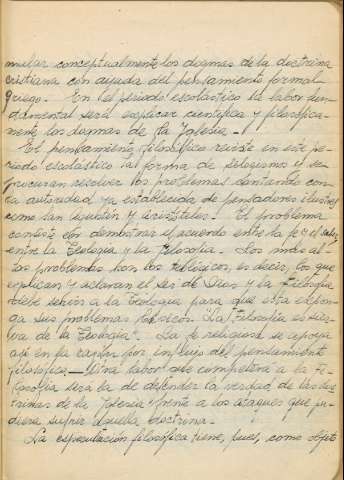 mular conceptualmente los dogmas de la doctrina
cristiana con ayuda del pensamiento formal
griego. En el periodo escolástico la labor fun-
damental será explicar científica y filosófica-
mente los dogmas de la Iglesia.
El pensamiento filosófico reviste en este pe-
riodo escolástico la forma de silogismo y se
procuran resolver los problemas contando con
la autoridad ya establecida de pensadores ilustres
como San Agustín y Aristóteles. El problema
consiste en demostrar el acuerdo entre la fe y el saber,
entre la Teología y la Filosofía. Los más al-
tos problemas son los teológicos, es decir, los que
explican y aclaran el ser de Dios y la Filosofía
debe servir a la Teología para que esta expon-
ga sus problemas básicos. "La Filosofía es sier-
va de la Teología". La fe religiosa se apoya
aquí en la razón por influjo del pensamiento
filosófico. Una labor que competerá a la Fi-
losofía será la de defender la verdad de las doc-
trinas de la Iglesia frente a los ataques que pu-
diera sufrir aquella doctrina.
La especulación filosófica tiene, pues, como objeto